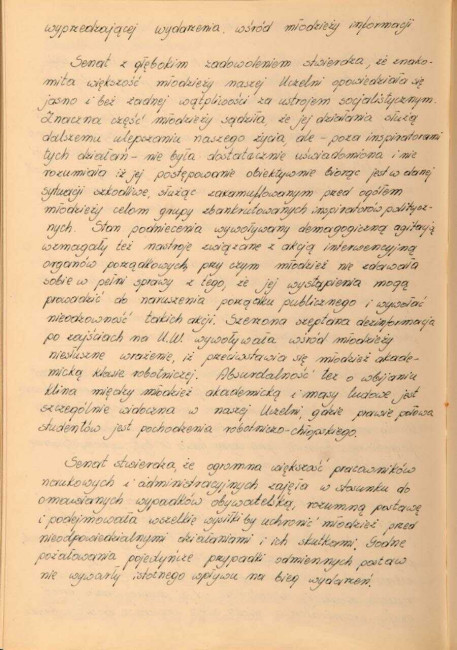 wyprzedzającej wydarzenia. wśród młodzieży informacji
Senat z głębokim zadowoleniem stwierdza, że znako-
mita większość młodzieży naszej Uczelni opowiedziała się
jasno i bez żadnej wątpliwości za ustrojem socjalistycznym.
Znaczna część młodzieży sądziła, że jej działania służą
dalszemu ulepszaniu naszego życia, ale - poza inspiratorami
tych działań - nie była dostatecznie uświadomiona i nie
rozumiała iż jej postępowanie obiektywnie biorąc jest w danej
sytuacji szkodliwe, służąc zakamuflowanym przed ogółem
młodzieży celom grupy zbankrutowanych inspiratorów politycz-
nych. Stan podniecenia wywoływany demagogiczną agitacją
wzmagały też nastroje związane z akcją interwencyjną
organów porządkowych, przy czym młodzież nie zdawała
sobie w pełni sprawy z tego, że jej wystąpienia mogą
prowadzić do naruszenia porządku publicznego i wywołać
nieodzowność takich akcji. Szerzona szeptana dezinformacja
po zajściach na U.W. wywoływała wśród młodzieży
niesłuszne wrażenie, iż przeciwstawia się młodzież akade-
micką klasie robotniczej. Absurdalność tez o wbijaniu
klina między młodzież akademicką i masy ludowe jest
szczególnie widoczna w naszej Uczelni, gdzie prawie połowa
studentów jest pochodzenia robotniczo-chłopskiego.
Senat stwierdza, że ogromna większość pracowników
naukowych i administracyjnych zajęła w stosunku do
omawianych wypadków obywatelską, rozumną postawę
i podejmowała wszelkie wysiłki by uchronić młodzież przed
nieodpowiedzialnymi działaniami i ich skutkami. Godne
pożałowania pojedyńcze przypadki odmiennych postaw
nie wywarły istotnego wpływu na bieg wydarzeń.